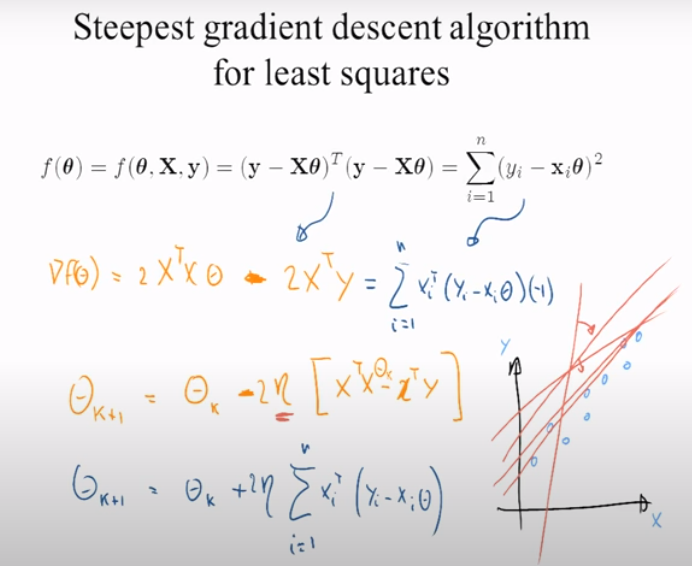 Steepest gradient descent algorithm
for least squares
f(θ) = f(θ, X, y) = (y − Xθ)ᵀ(y − Xθ) = ∑ᵢ₌₁ⁿ (yᵢ − xᵢθ)²
∇f(θ) = 2 XᵀX θ - 2XᵀY = ∑ᵢ₌₁ⁿ xᵢᵀ(yᵢ - xᵢθ)(-1)
θₖ₊₁ = θₖ - 2η [XᵀXθₖ - XᵀY]
θₖ₊₁ = θₖ + 2η ∑ᵢ₌₁ⁿ xᵢᵀ (yᵢ - xᵢθ)
Y
X